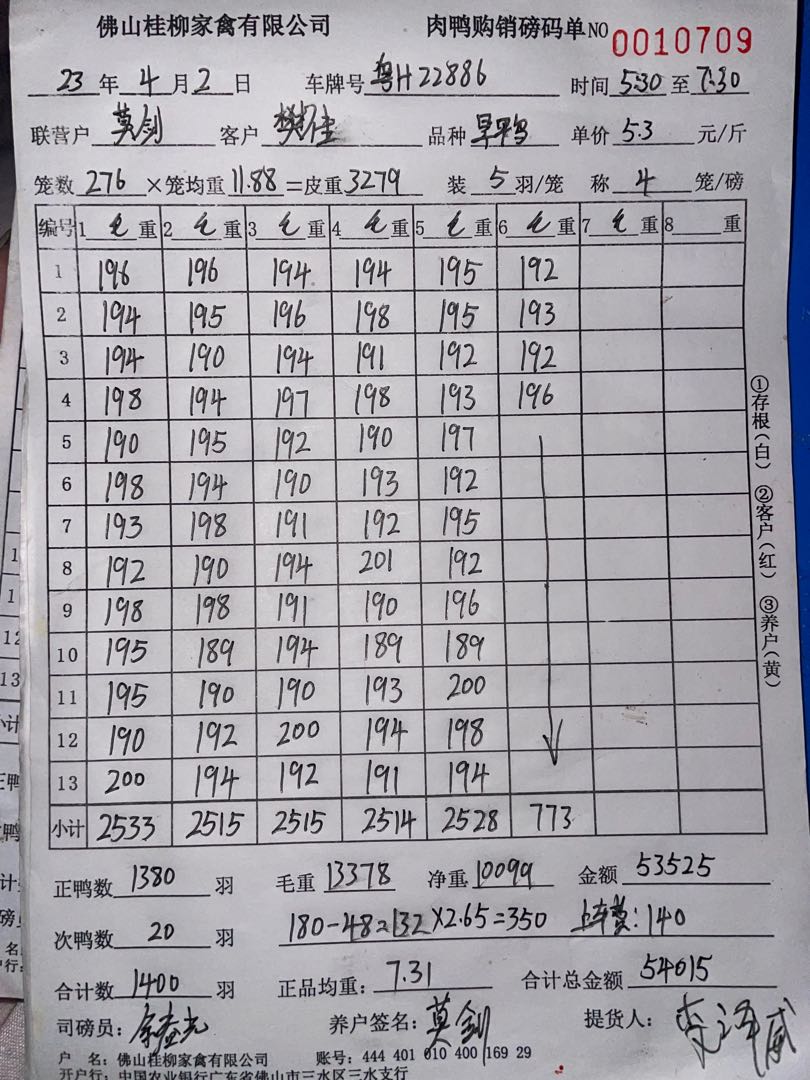 佛山桂柳家禽有限公司 肉鸭购销磅码单 NO 0010709
23 年 4 月 2 日 车牌号 粤H22886 时间 5:30 至 7:30
联营户 莫剑 客户 樊佳 品种 旱鸭 单价 5.3 元/斤
笼数 276 ×笼均重 11.88 =皮重 3279 装 5 羽/笼 称 4 笼/磅
编号 1 毛 重 2 毛 重 3 毛 重 4 毛 重 5 毛 重 6 毛 重 7 毛 重 8 重
1 196 196 194 194 195 192
2 194 195 196 198 195 193
3 194 190 194 191 192 192
4 198 194 197 198 193 196
5 190 195 192 190 197
6 198 194 190 193 192
7 193 198 191 192 195
8 192 190 194 201 192
9 198 198 191 190 196
10 195 189 194 189 189
11 195 190 190 193 200
12 190 192 200 194 198
13 200 194 192 191 194
小计 2533 2515 2515 2514 2528 773
①存根(白) ②客户(红) ③养户(黄)
正鸭数 1380 羽 毛重 13378 净重 10099 金额 53525
次鸭数 20 羽 180-48=132×2.65=350 上车费:140
合计数 1400 羽 正品均重: 7.31 合计总金额 54015
司磅员: 养户签名: 莫剑 提货人: 李泽威
户 名: 佛山桂柳家禽有限公司 账号: 444 401 010 400 169 29
开户行: 中国农业银行广东省佛山市三水区三水支行